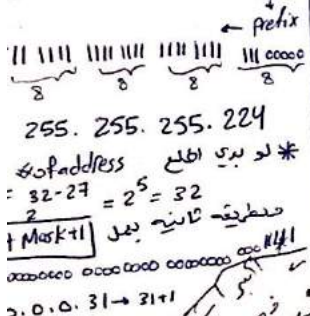 ← Prefix
11 1111 1111 1111 1111 1111 111 00000
8 8 8 8
255. 255. 255. 224
* لو بدي اطلع #of address
= 2^32-27 = 2^5 = 32
وبطريقة ثانيه بعمل
t Mask+1
00000000 00000000 00000000 00011111
0.0.0.31 → 31+1